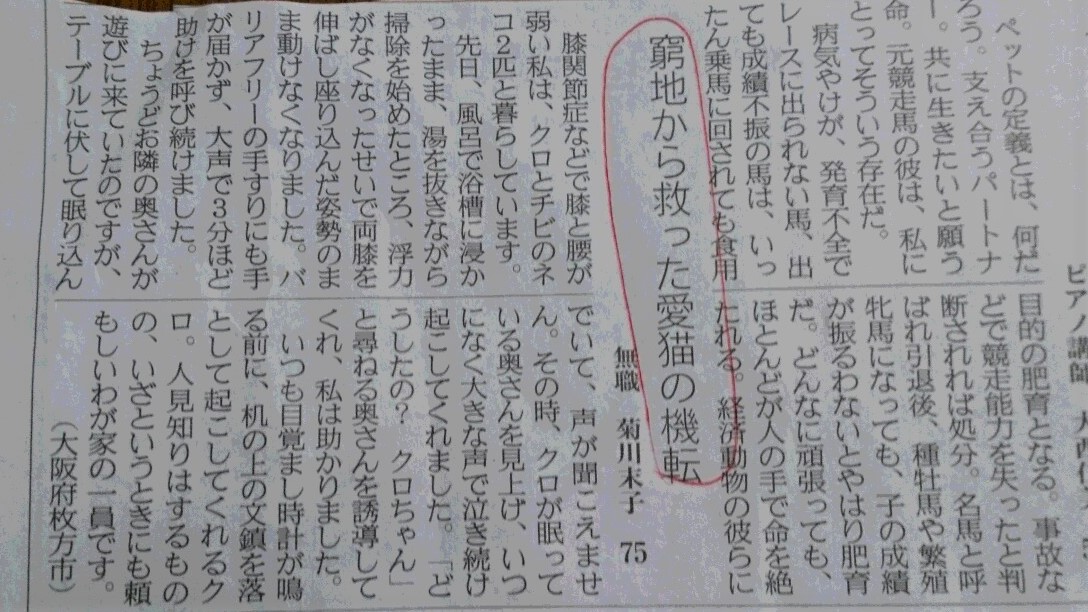 ピアノ講師
ペットの定義とは、何だ
ろう。支え合うパートナ
ー。共に生きたいと願う
命。元競走馬の彼は、私に
とってそういう存在だ。
病気やけが、発育不全で
レースに出られない馬、出
ても成績不振の馬は、いっ
たん乗馬に回されても食用
目的の肥育となる。事故な
どで競走能力を失ったと判
断されれば処分。名馬と呼
ばれ引退後、種牡馬や繁殖
牝馬になっても、子の成績
が振るわないとやはり肥育
だ。どんなに頑張っても、
ほとんどが人の手で命を絶
たれる。経済動物の彼らに
窮地から救った愛猫の機転
無職 菊川末子 75
膝関節症などで膝と腰が
弱い私は、クロとチビのネ
コ2匹と暮らしています。
先日、風呂で浴槽に浸か
ったまま、湯を抜きながら
掃除を始めたところ、浮力
がなくなったせいで両膝を
伸ばし座り込んだ姿勢のま
ま動けなくなりました。バ
リアフリーの手すりにも手
が届かず、大声で3分ほど
助けを呼び続けました。
ちょうどお隣の奥さんが
遊びに来ていたのですが、
テーブルに伏して眠り込ん
でいて、声が聞こえませ
ん。その時、クロが眠って
いる奥さんを見上げ、いつ
になく大きな声で泣き続け
起こしてくれました。「ど
うしたの? クロちゃん」
と尋ねる奥さんを誘導して
くれ、私は助かりました。
いつも目覚まし時計が鳴
る前に、机の上の文鎮を落
として起こしてくれるク
ロ。人見知りはするもの
の、いざというときにも頼
もしいわが家の一員です。
(大阪府枚方市)